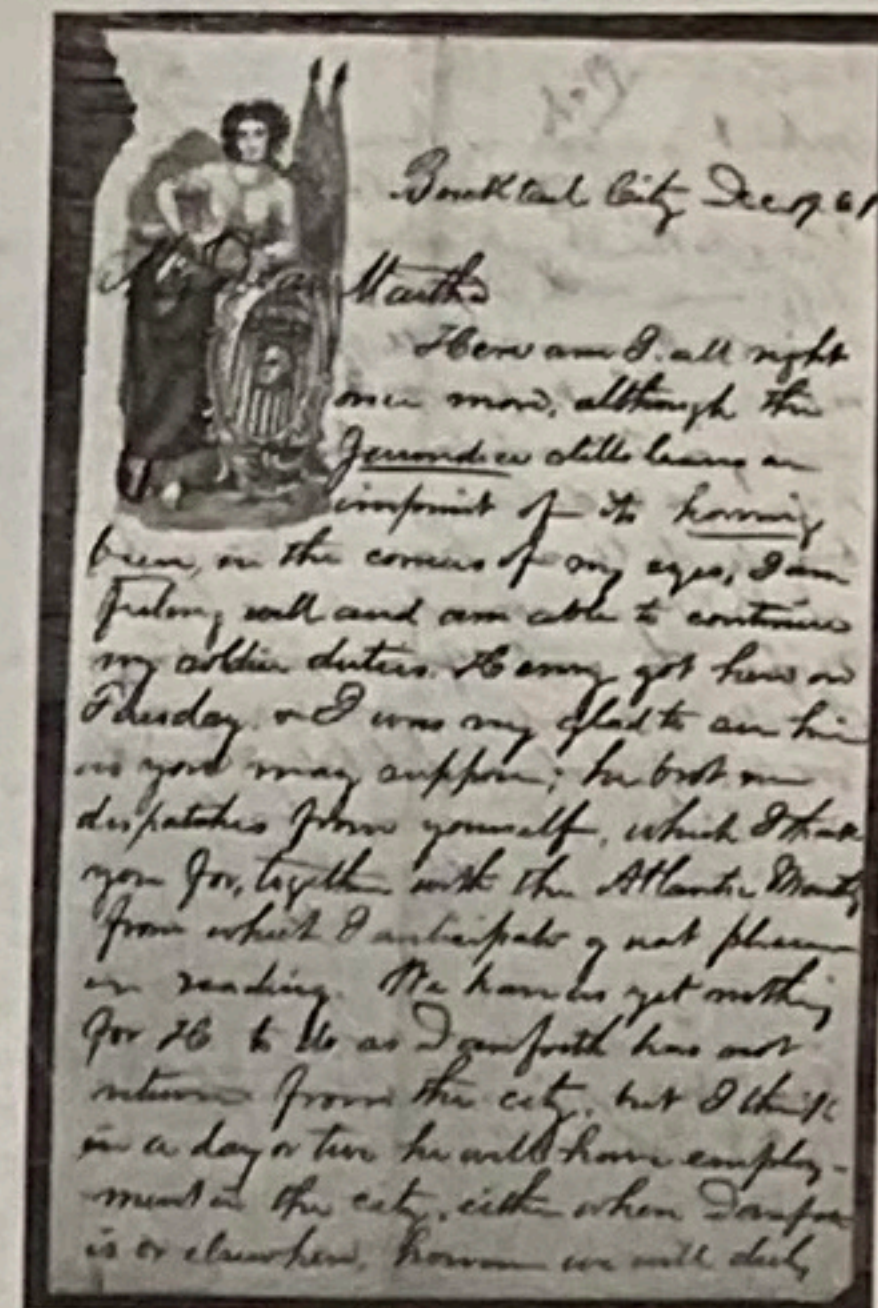 Bucktail City Dec 19. 61
My Dear Martha
Here am I. all right
once more, although the
Jaundice still leaves an
imprint of its having
been, in the corners of my eyes, I am
feeling well and am able to continue
my soldier duties. Henry got here on
Tuesday & I was very glad to see him
as you may suppose; he brot me
dispatches from yourself, which I thank
you for, together with the Atlantic Monthly
from which I anticipate great pleasure
in reading. We have as yet nothing
for H to do as Danforth has not
return from the city, but I think
in a day or two he will have employ-
ment in the city, either where Danforth
is or elsewhere, however we will